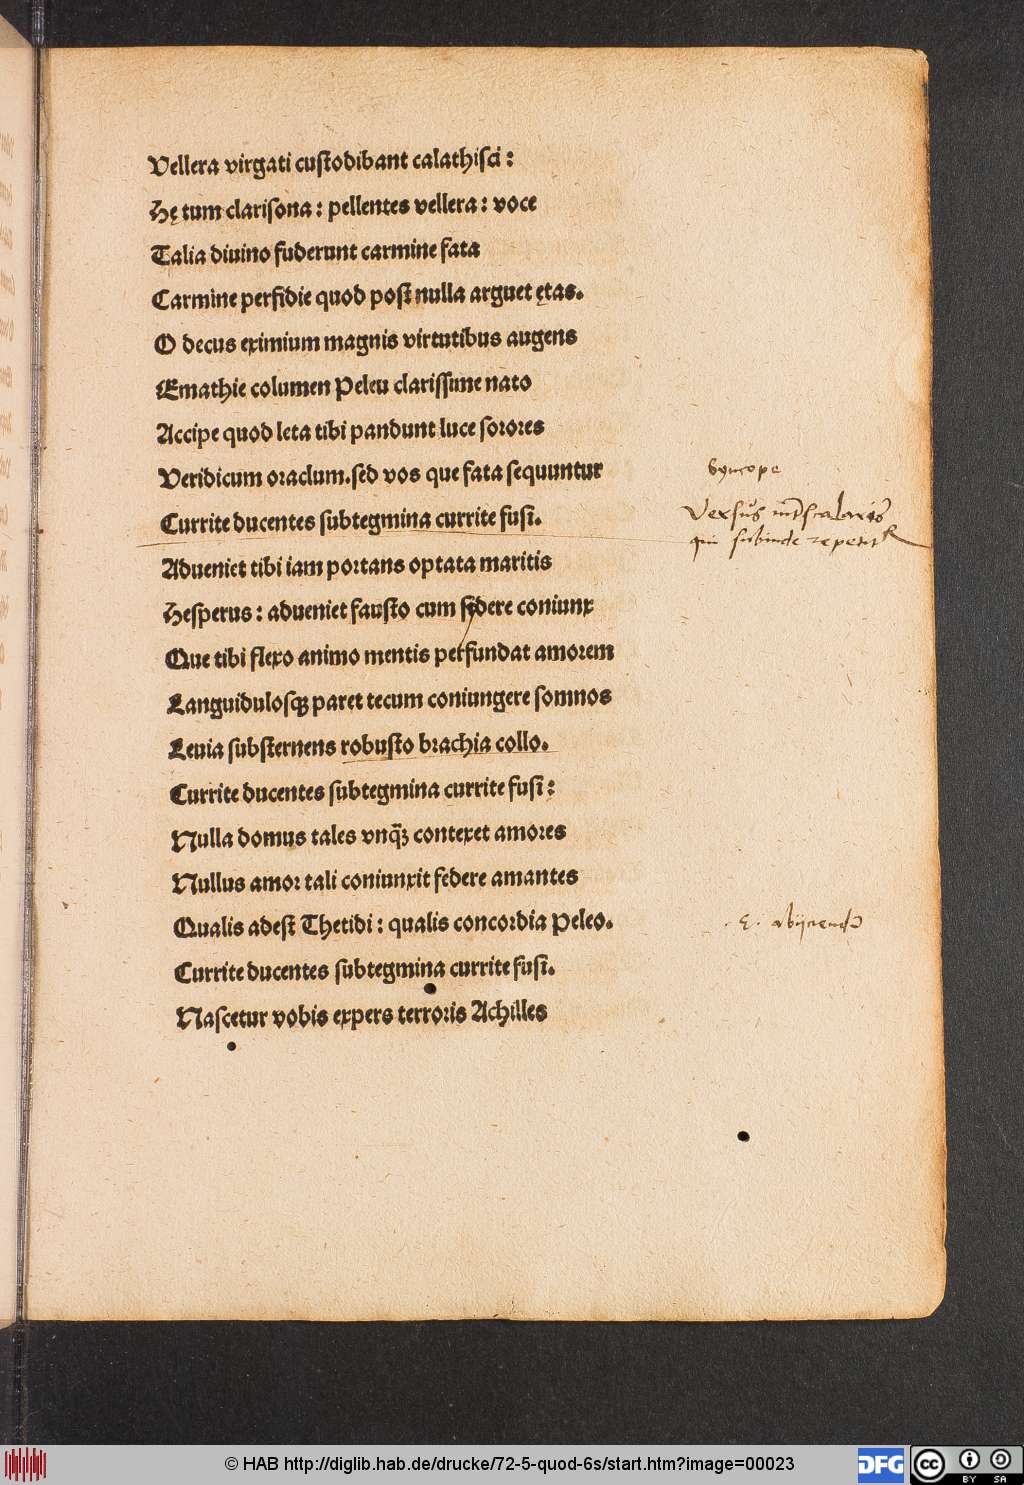 Vellera virgati custodibant calathisci:
Hę tum clarisona: pellentes vellera: voce
Talia diuino fuderunt carmine fata
Carmine perfidie quod post nulla arguet ętas.
O decus eximium magnis virtutibus augens
Emathie columen Peleu clarissime nato
Accipe quod leta tibi pandunt luce sorores
Veridicum oraclum.sed vos que fata sequuntur
Syncope
Currite ducentes subtegmina currite fusi.
Versus intercalaris
qui subinde repetit
Adueniet tibi iam portans optata maritis
Hesperus: adueniet fausto cum sydere coniunx
Que tibi flexo animo mentis perfundat amorem
Languidulosq; paret tecum coniungere somnos
Leuia substernens robusto brachia collo.
Currite ducentes subtegmina currite fusi:
Nulla domus tales vnq̃ꝫ contexet amores
Nullus amor tali coniunxit federe amantes
Qualis adest Thetidi: qualis concordia Peleo.
Currite ducentes subtegmina currite fusi.
Nascetur vobis expers terroris Achilles
© HAB http://diglib.hab.de/drucke/72-5-quod-6s/start.htm?image=00023
DFG
cc
BY SA